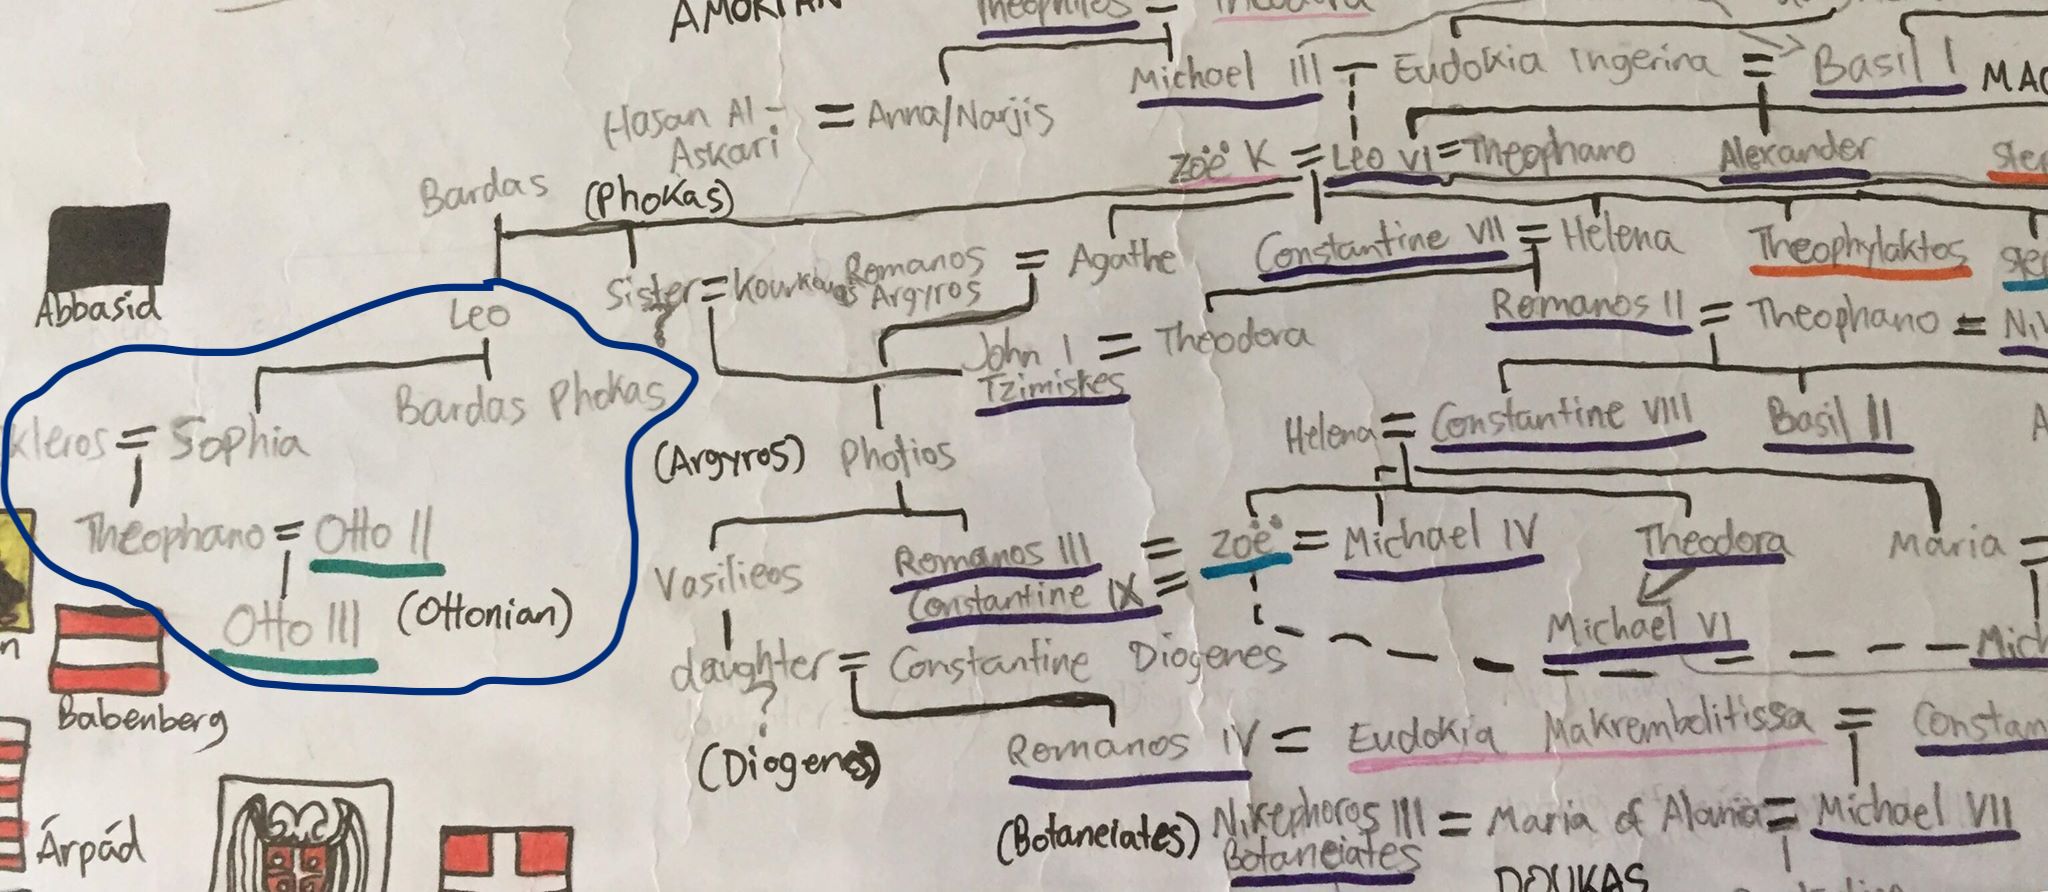 AMORIAN
Theophilos = Theodora
Michael III Eudokia Ingerina = Basil I
Hasan Al-
Askari = Anna/Narjis
Zoë K = Leo VI = Theophano Alexander
Bardas (Phokas)
Constantine VII = Helena Theophylaktos
Sister = Kourkouas Romanos
Argyros = Agathe
?
Abbasid
Leo
Romanos II = Theophano =
John I
Tzimiskes = Theodora
Bardas Phokas
Helena = Constantine VIII Basil II
kleros = Sophia
(Argyros) Photios
Theophano = Otto II
Romanos III = Zoë = Michael IV Theodora Maria =
Vasilieos
Constantine IX =
Otto III (Ottonian)
Michael VI
daughter = Constantine Diogenes
?
Babenberg
(Diogenes)
Romanos IV = Eudokia Makrembolitissa =
(Botaneiates) Nikephoros III
Botaneiates = Maria of Alania = Michael VII
Árpád
DOUKAS